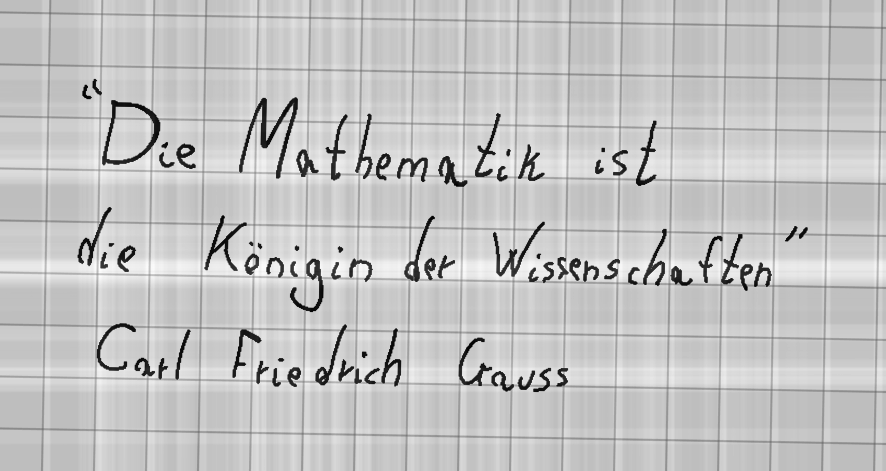 “Die Mathematik ist
die Königin der Wissenschaften”
Carl Friedrich Gauss